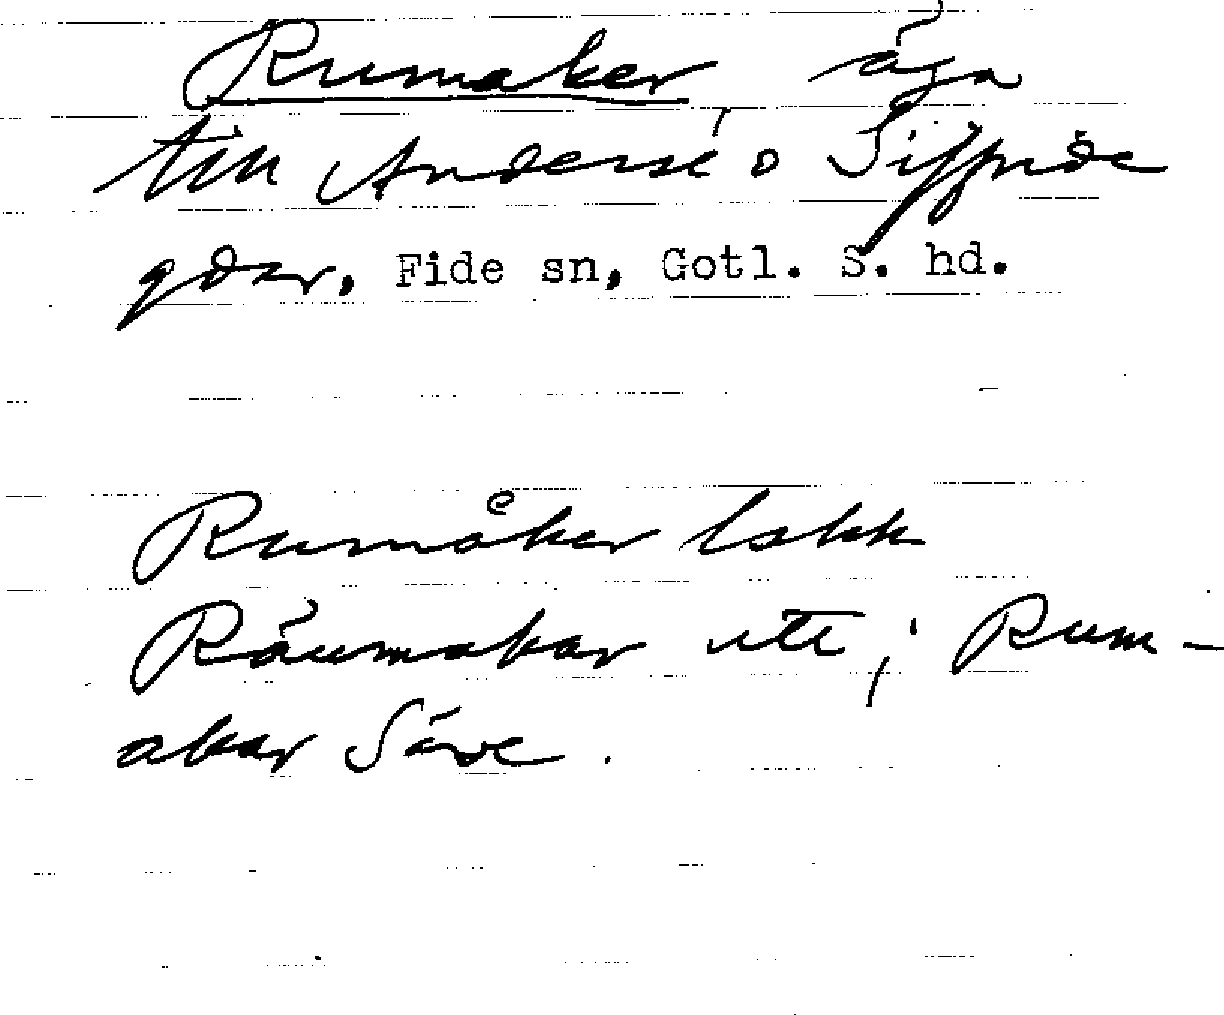 Rumaker, äga
till Anderse o Siffride
gdar, Fide sn, Gotl. S. hd.
Rumåker lskk
Räumakar utt; Rum-
akar Säve.